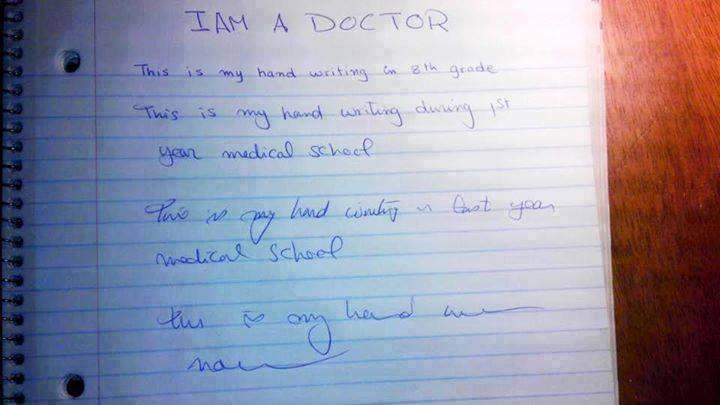 I AM A DOCTOR
This is my hand writing in 8th grade
This is my hand writing during 1st
year medical school
this is my hand writing in last year
medical school
this is my hand
now